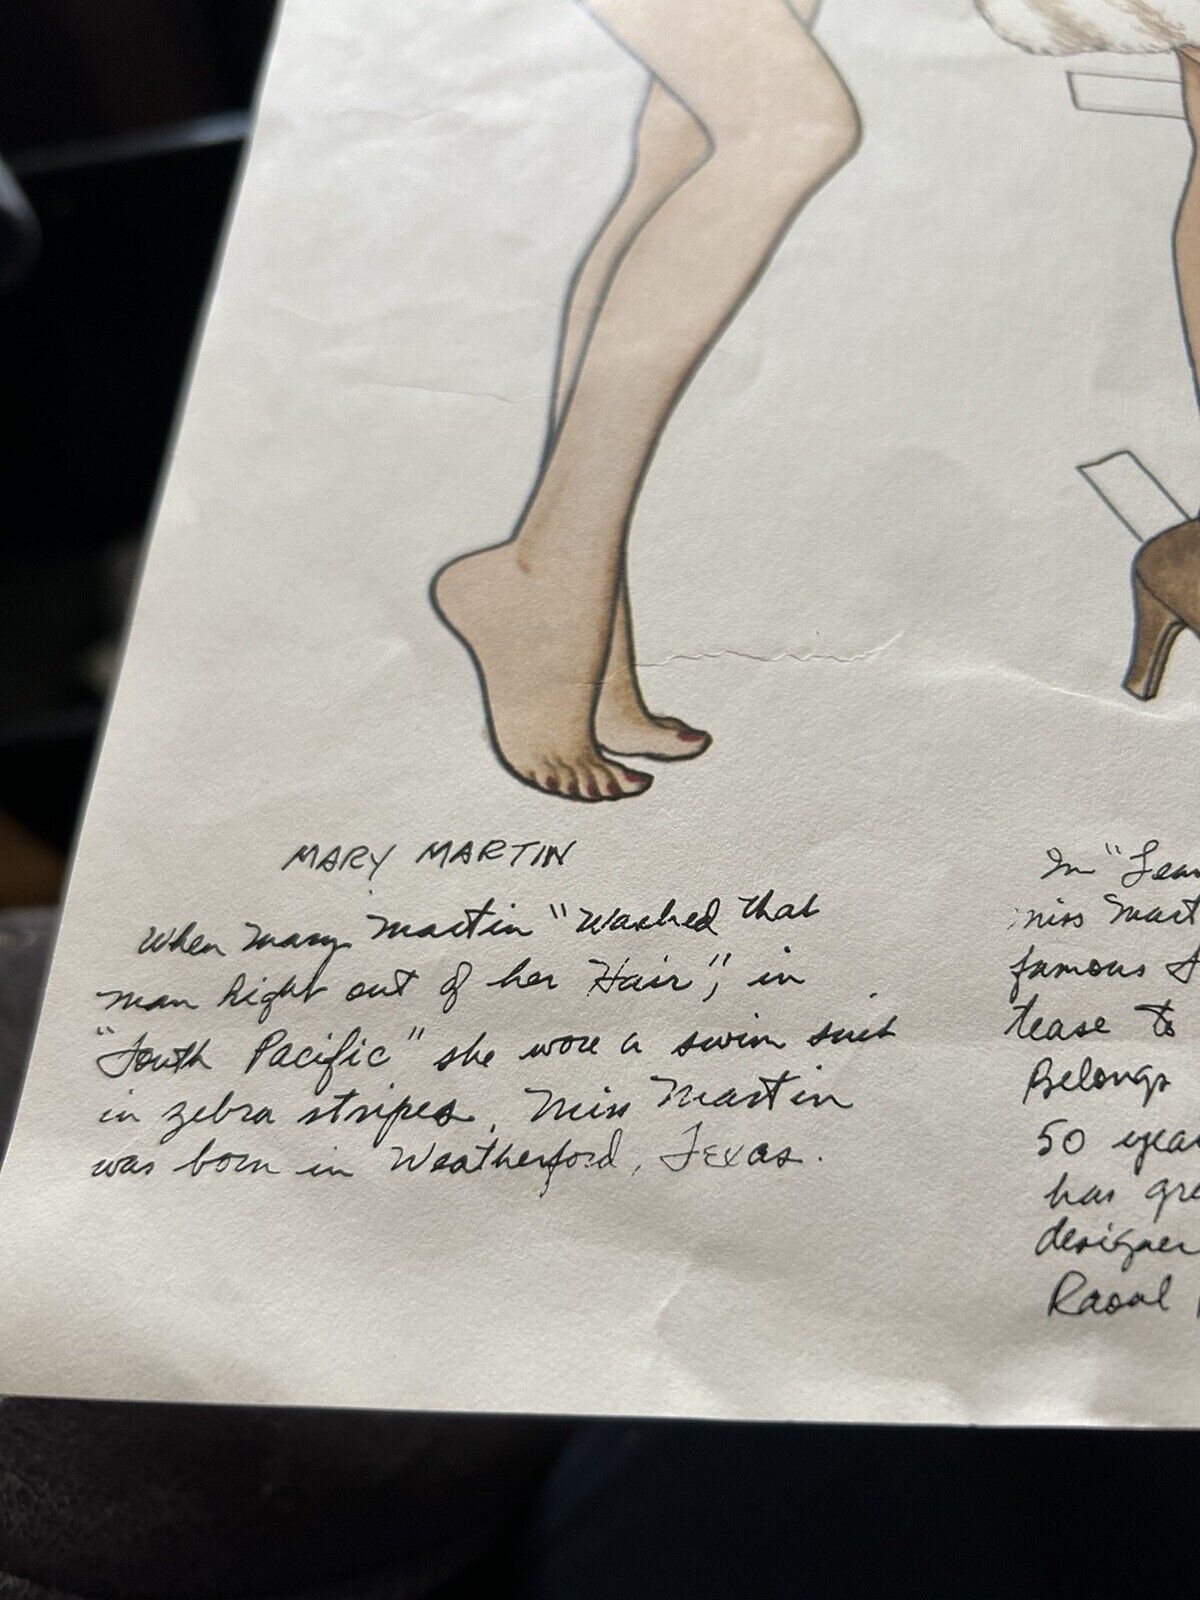 MARY MARTIN
When Mary Martin "Washed that
man Right out of her Hair", in
"South Pacific" she wore a swim suit
in zebra stripes. Miss Martin
was born in Weatherford, Texas.
In "Leav
miss Mart
famous
tease to
Belongs
50 year
has gre
designer
Raoul